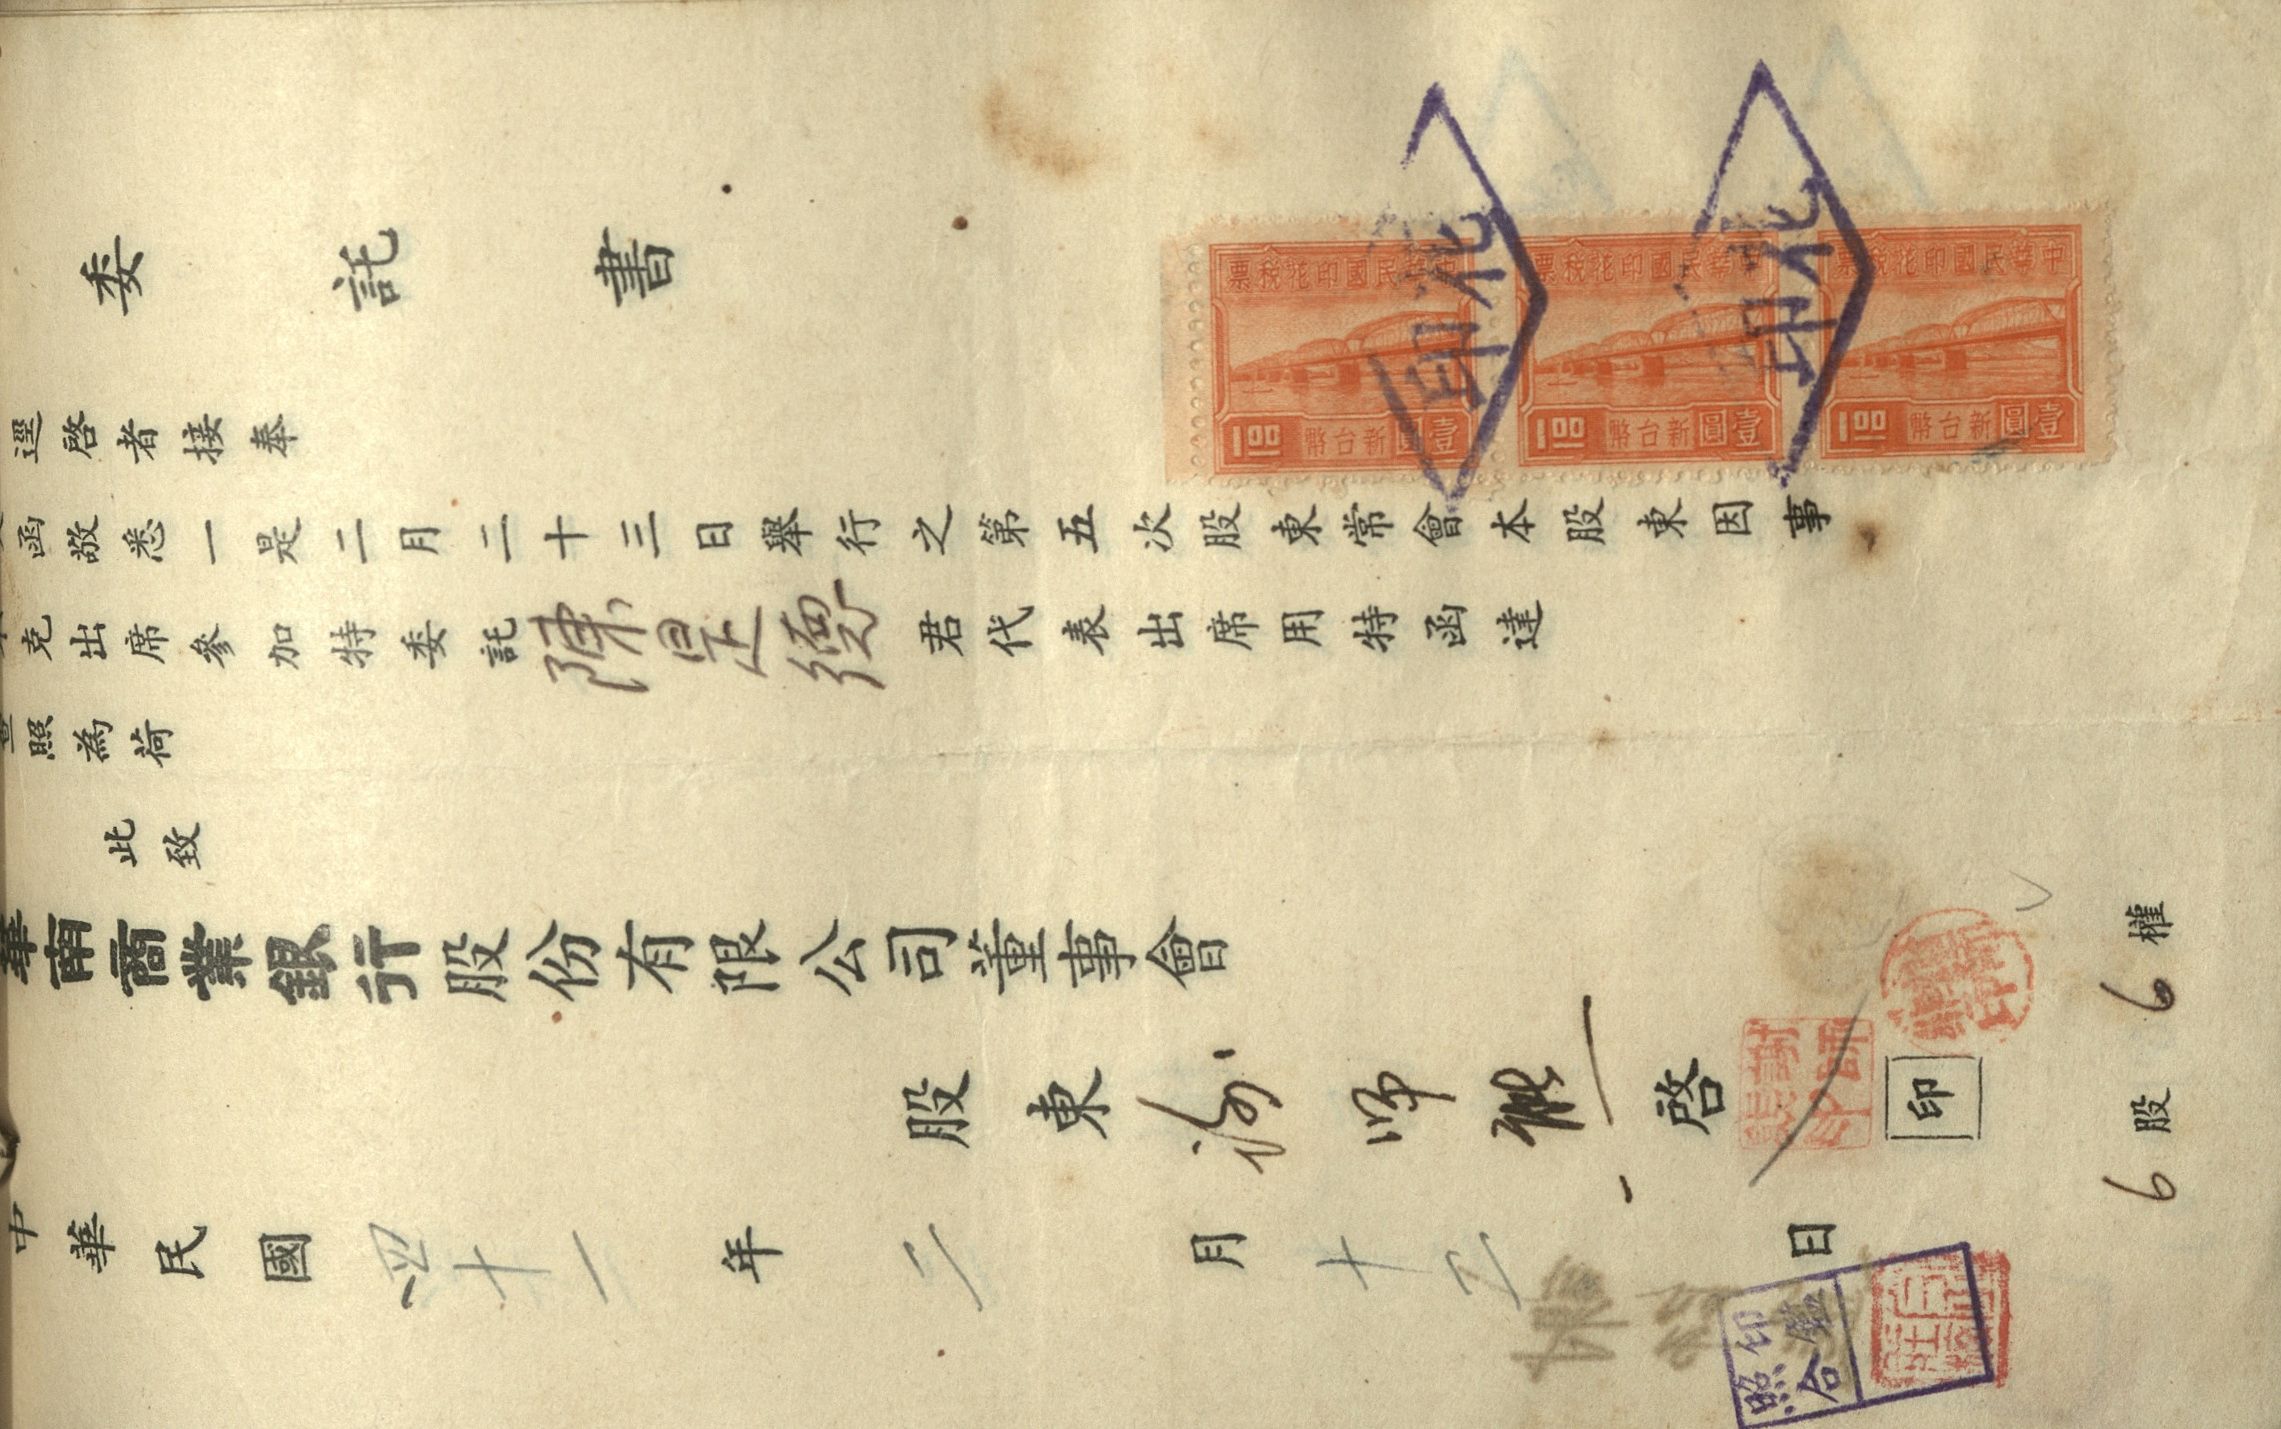 委託書
逕啓者接奉
函敬悉一是二月二十三日舉行之第五次股東常會本股東因事
克出席參加特委託陳是 君代表出席用特函達
照為荷
此致
華南商業銀行股份有限公司董事會
股東謝師熊啓
印
中華民國四十一年二月十三日
6股 6權
中華民國印花稅票
新台幣
壹圓
100
中華民國印花稅票
新台幣
壹圓
100
中華民國印花稅票
新台幣
壹圓
100
印花
印花
印鑑
照合